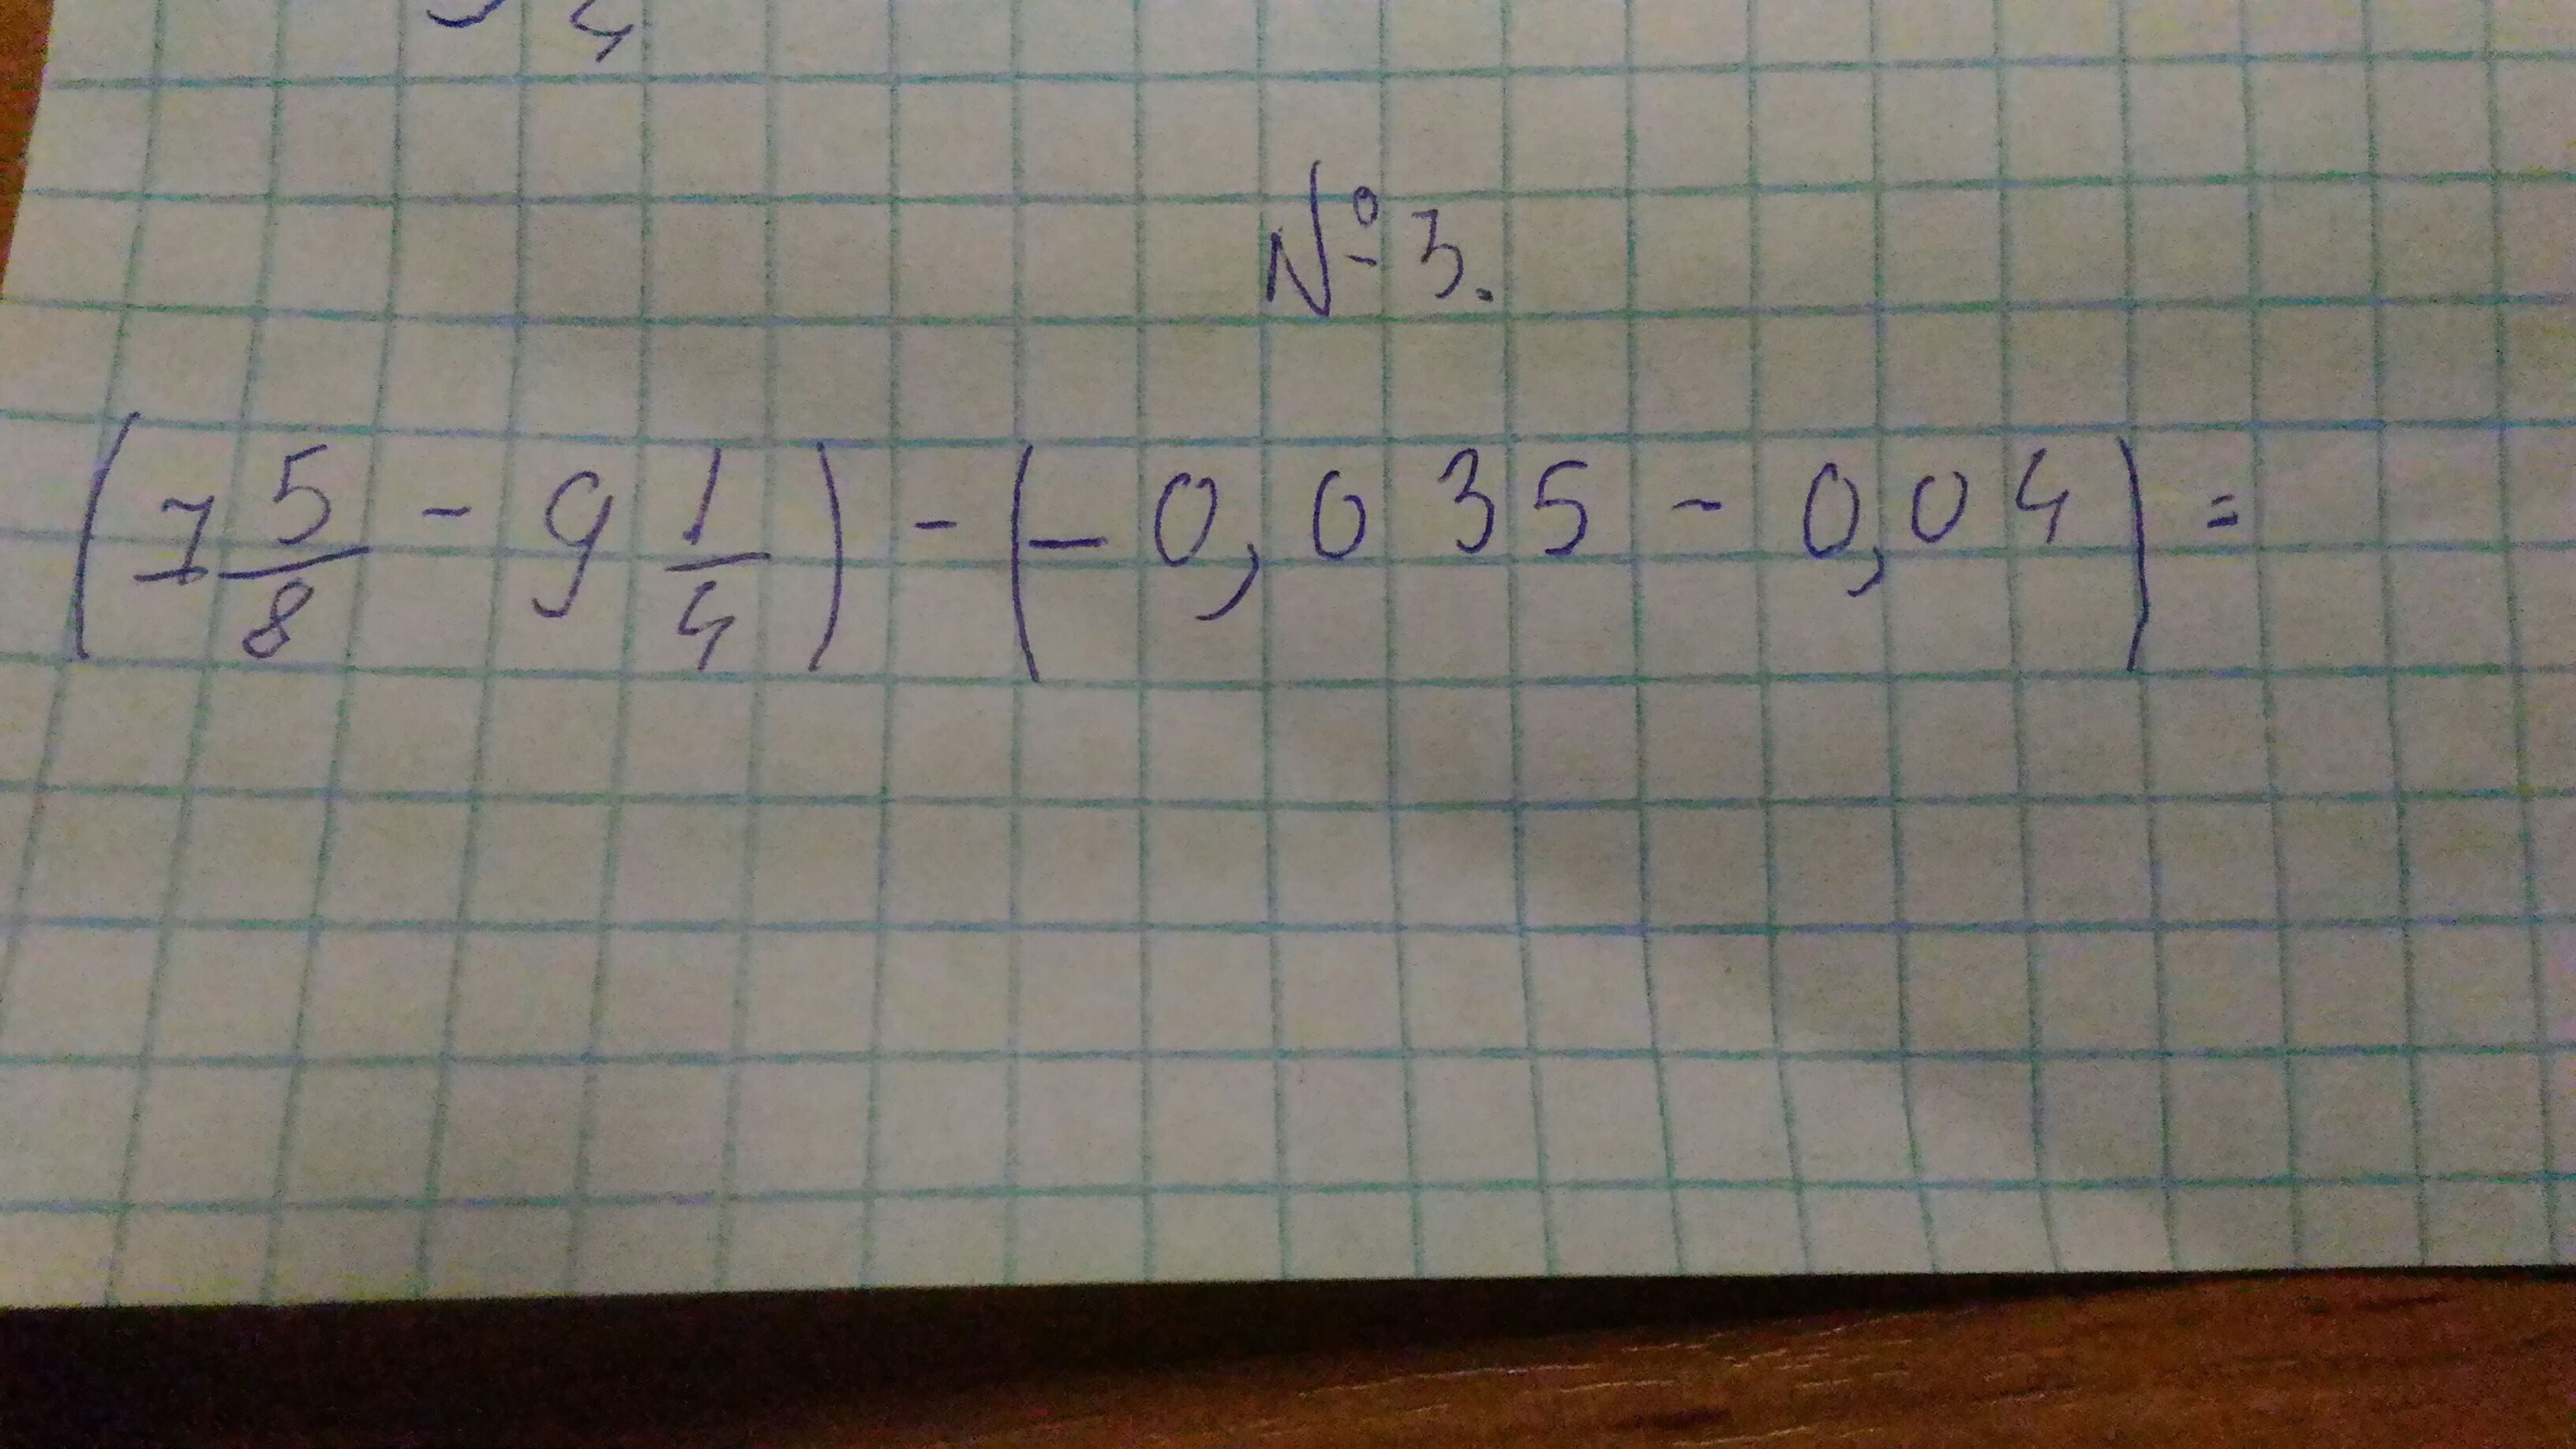 4
№ 3.
(1 5/8 - 9 1/4) - (-0,035 - 0,04) =